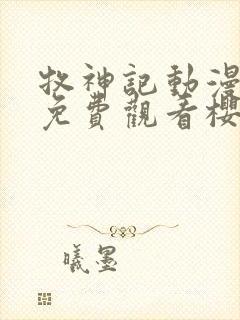 牧神記動漫
免費觀看櫻
曦墨